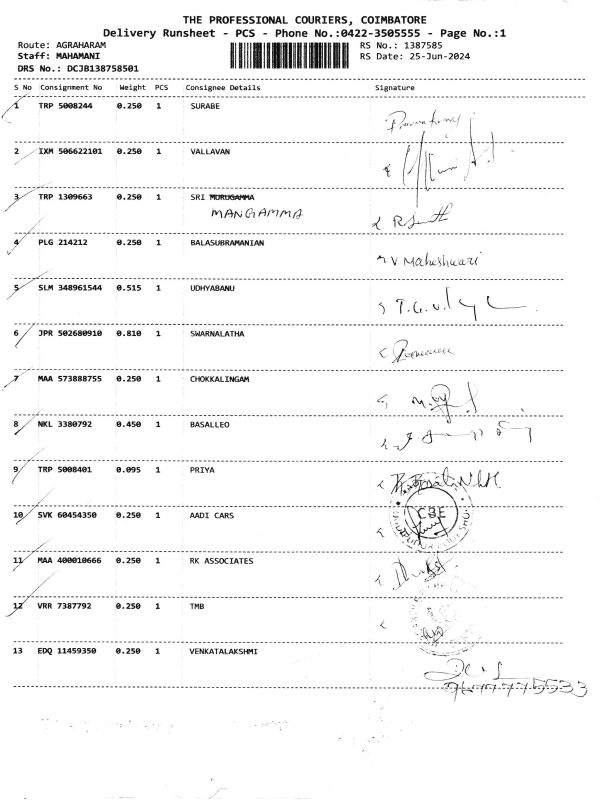 THE PROFESSIONAL COURIERS, COIMBATORE
Delivery Runsheet - PCS - Phone No.:0422-3505555 - Page No.:1
Route: AGRAHARAM RS No.: 1387585
Staff: MAHAMANI RS Date: 25-Jun-2024
DRS No.: DCJB138758501
S No Consignment No Weight PCS Consignee Details Signature
1 TRP 5008244 0.250 1 SURABE
2 IXM 506622101 0.250 1 VALLAVAN
3 TRP 1309663 0.250 1 SRI MURUGAMMA
MANGAMMA
4 PLG 214212 0.250 1 BALASUBRAMANIAN
V Maheshwari
5 SLM 348961544 0.515 1 UDHYABANU
6 JPR 502680910 0.810 1 SWARNALATHA
7 MAA 573888755 0.250 1 CHOKKALINGAM
8 NKL 3380792 0.450 1 BASALLEO
9 TRP 5008401 0.095 1 PRIYA
10 SVK 60454350 0.250 1 AADI CARS
CBE
11 MAA 400010666 0.250 1 RK ASSOCIATES
12 VRR 7387792 0.250 1 TMB
13 EDQ 11459350 0.250 1 VENKATALAKSHMI
9677775533